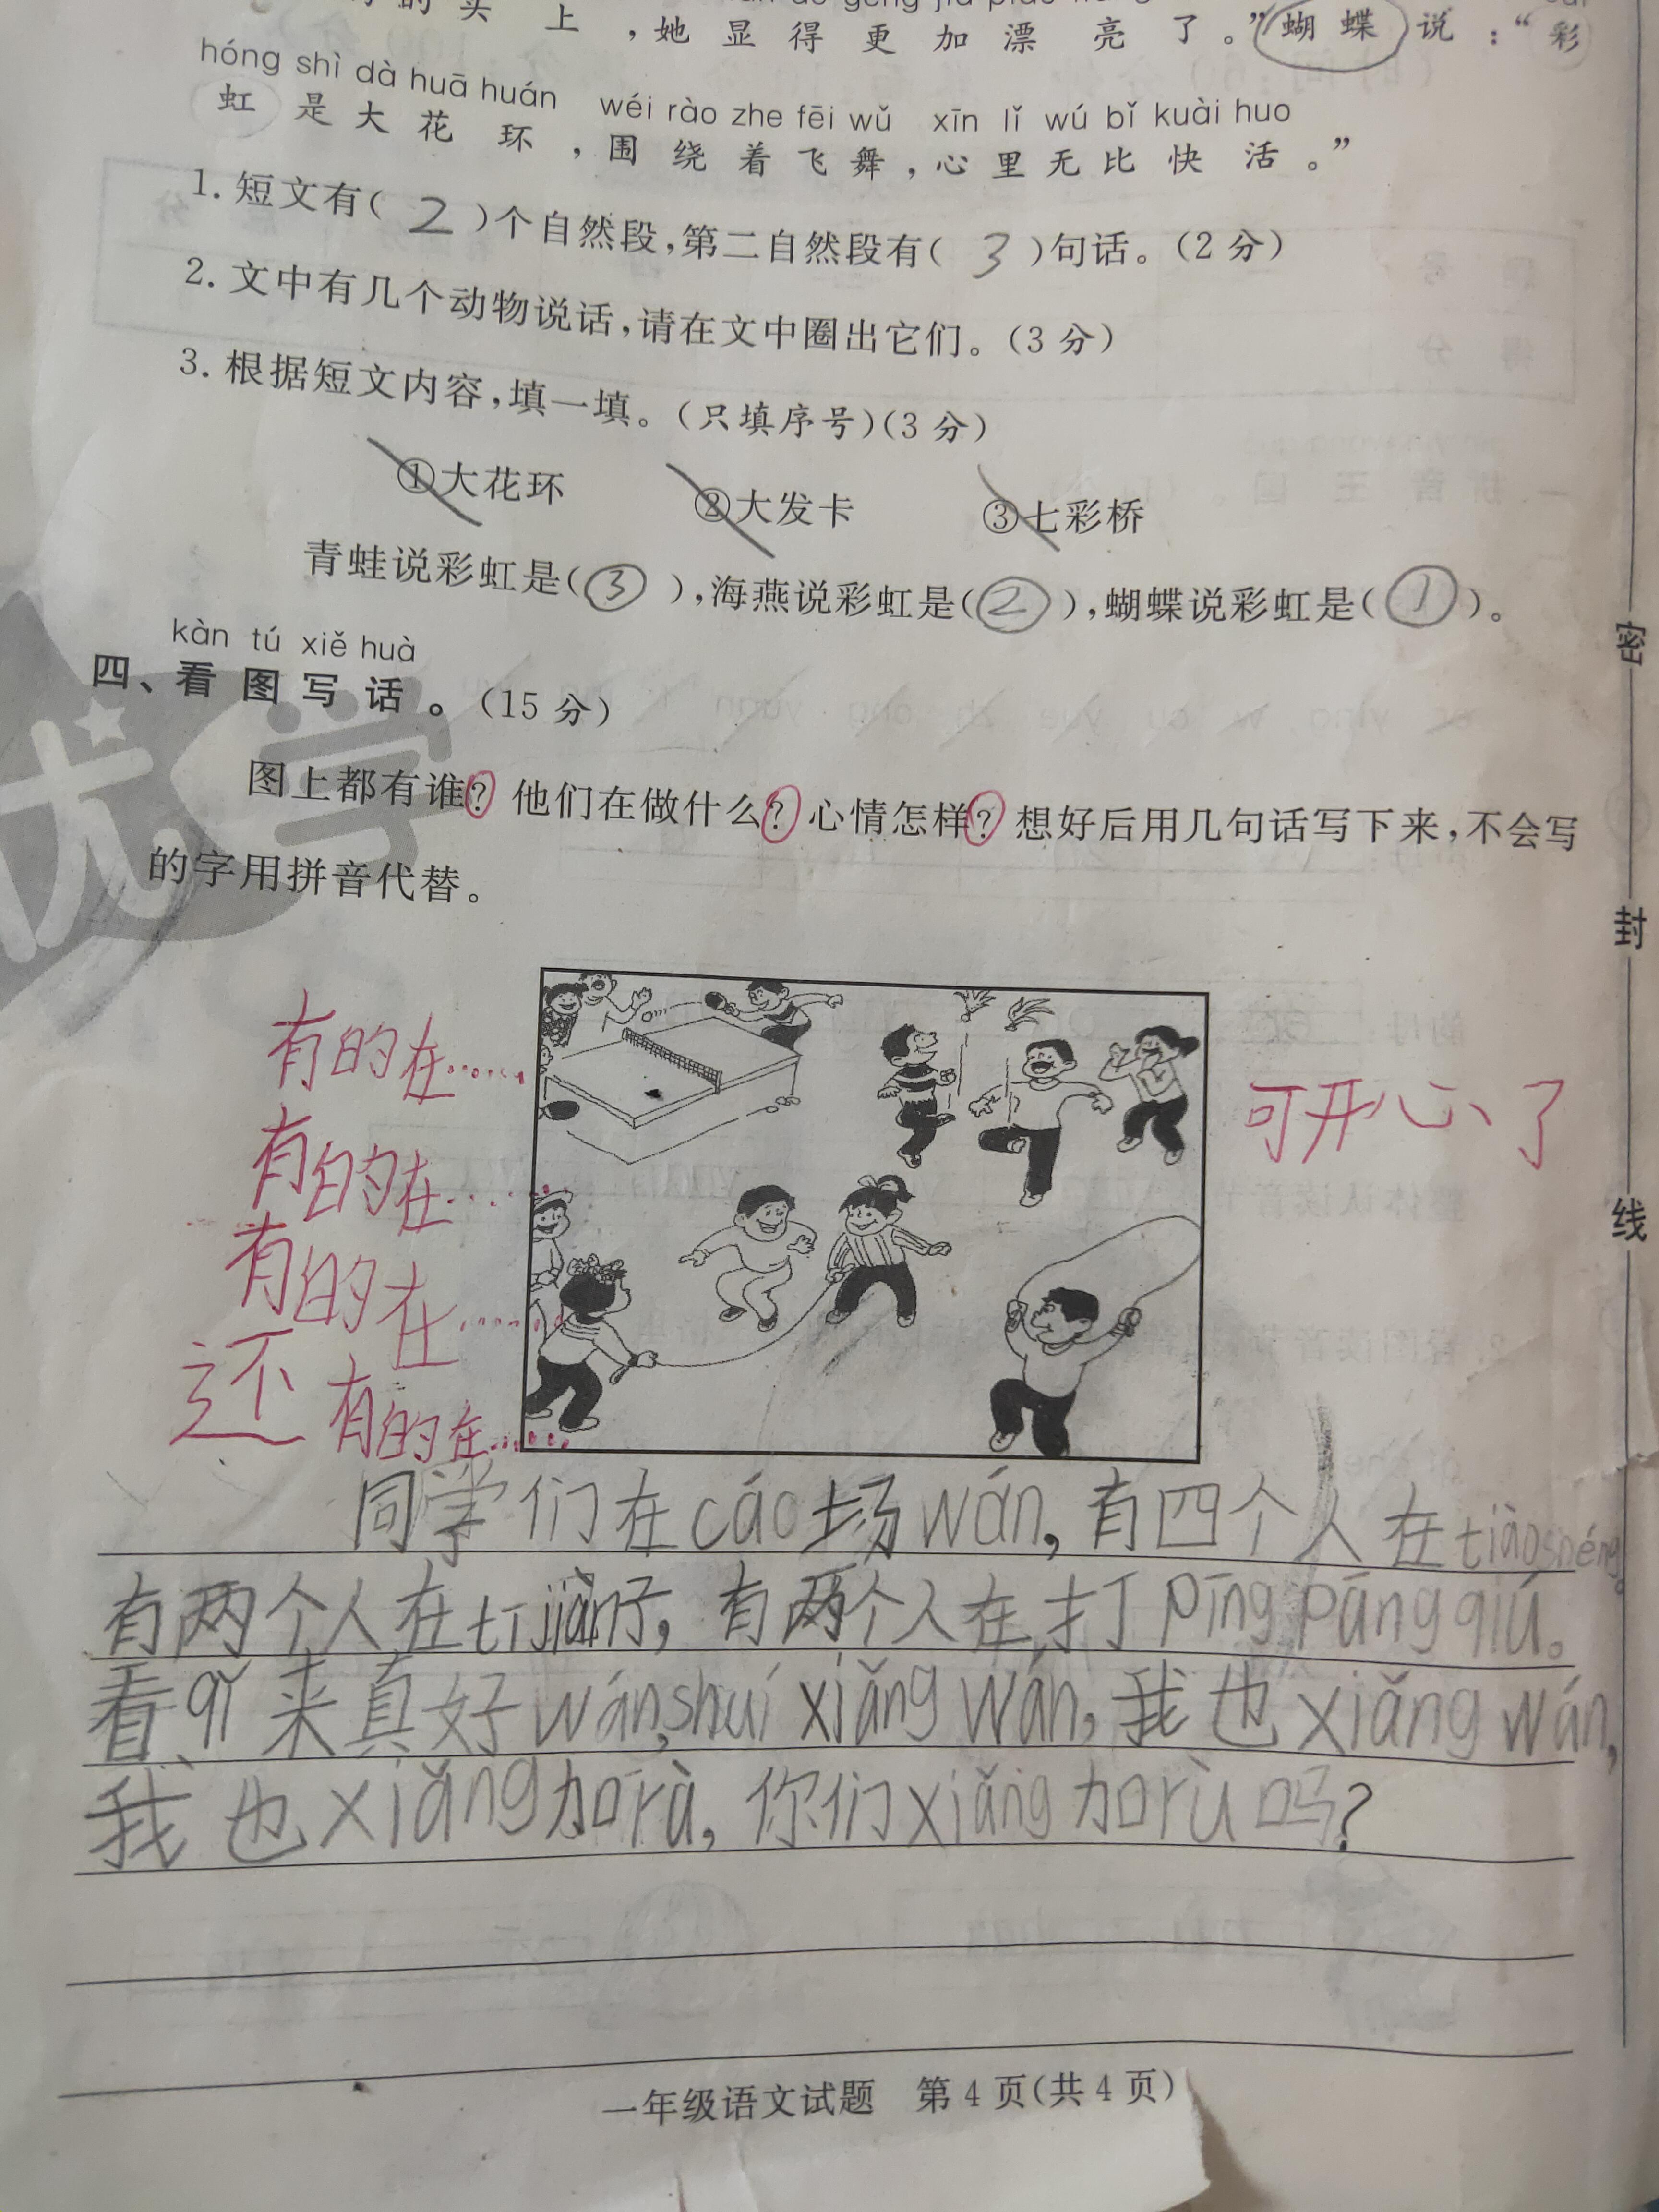 的头上，她显得更加漂亮了。”蝴蝶说：“彩
hóng shì dà huā huán wéi rào zhe fēi wǔ xīn lǐ wú bǐ kuài huo
虹是大花环，围绕着飞舞，心里无比快活。”
1. 短文有( 2 )个自然段，第二自然段有( 3 )句话。(2 分)
2. 文中有几个动物说话，请在文中圈出它们。(3 分)
3. 根据短文内容，填一填。(只填序号)(3 分)
①大花环 ②大发卡 ③七彩桥
青蛙说彩虹是(③)，海燕说彩虹是(②)，蝴蝶说彩虹是(①)。
kàn tú xiě huà
四、看图写话。(15 分)
图上都有谁？他们在做什么？心情怎样？想好后用几句话写下来，不会写
的字用拼音代替。
优学
有的在……
有的在……
有的在……
还有的在……
可开心了
同学们在cáo场wán，有四个人在tiàoshéng。
有两个人在tījiàn子，有两个人在打pīngpāngqiú。
看qǐ来真好wán，shuí xiǎng wán，我也xiǎng wán，
我也xiǎng加rà，你们xiǎng加rù吗？
一年级语文试题 第 4 页(共 4 页)
密
封
线